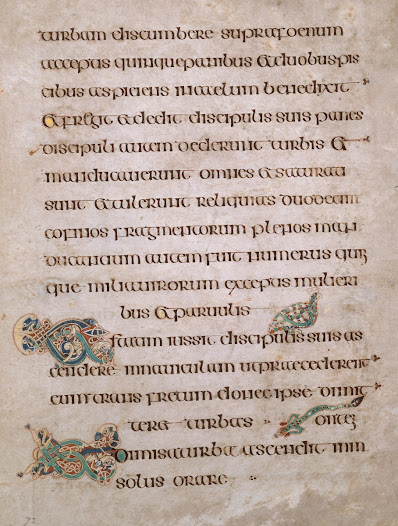 turbam discumbere supra foenum
acceptis quinque panibus et duobus pis
cibus aspiciens in caelum benedixit
et fregit et dedit discipulis suis panes
discipuli autem dederunt turbis et
manducauerunt omnes et saturati
sunt et tulerunt reliquias duodecim
cofinos fragmentorum plenos man
ducantium autem fuit numerus quin
que milia uirorum exceptis mulieri
bus et paruulis
statim iussit discipulis suis as
cendere in nauiculam ut praecederent
eum trans fretum donec ipse dimit
teret turbas ontem
dimissa turba ascendit in m
solus orare
72